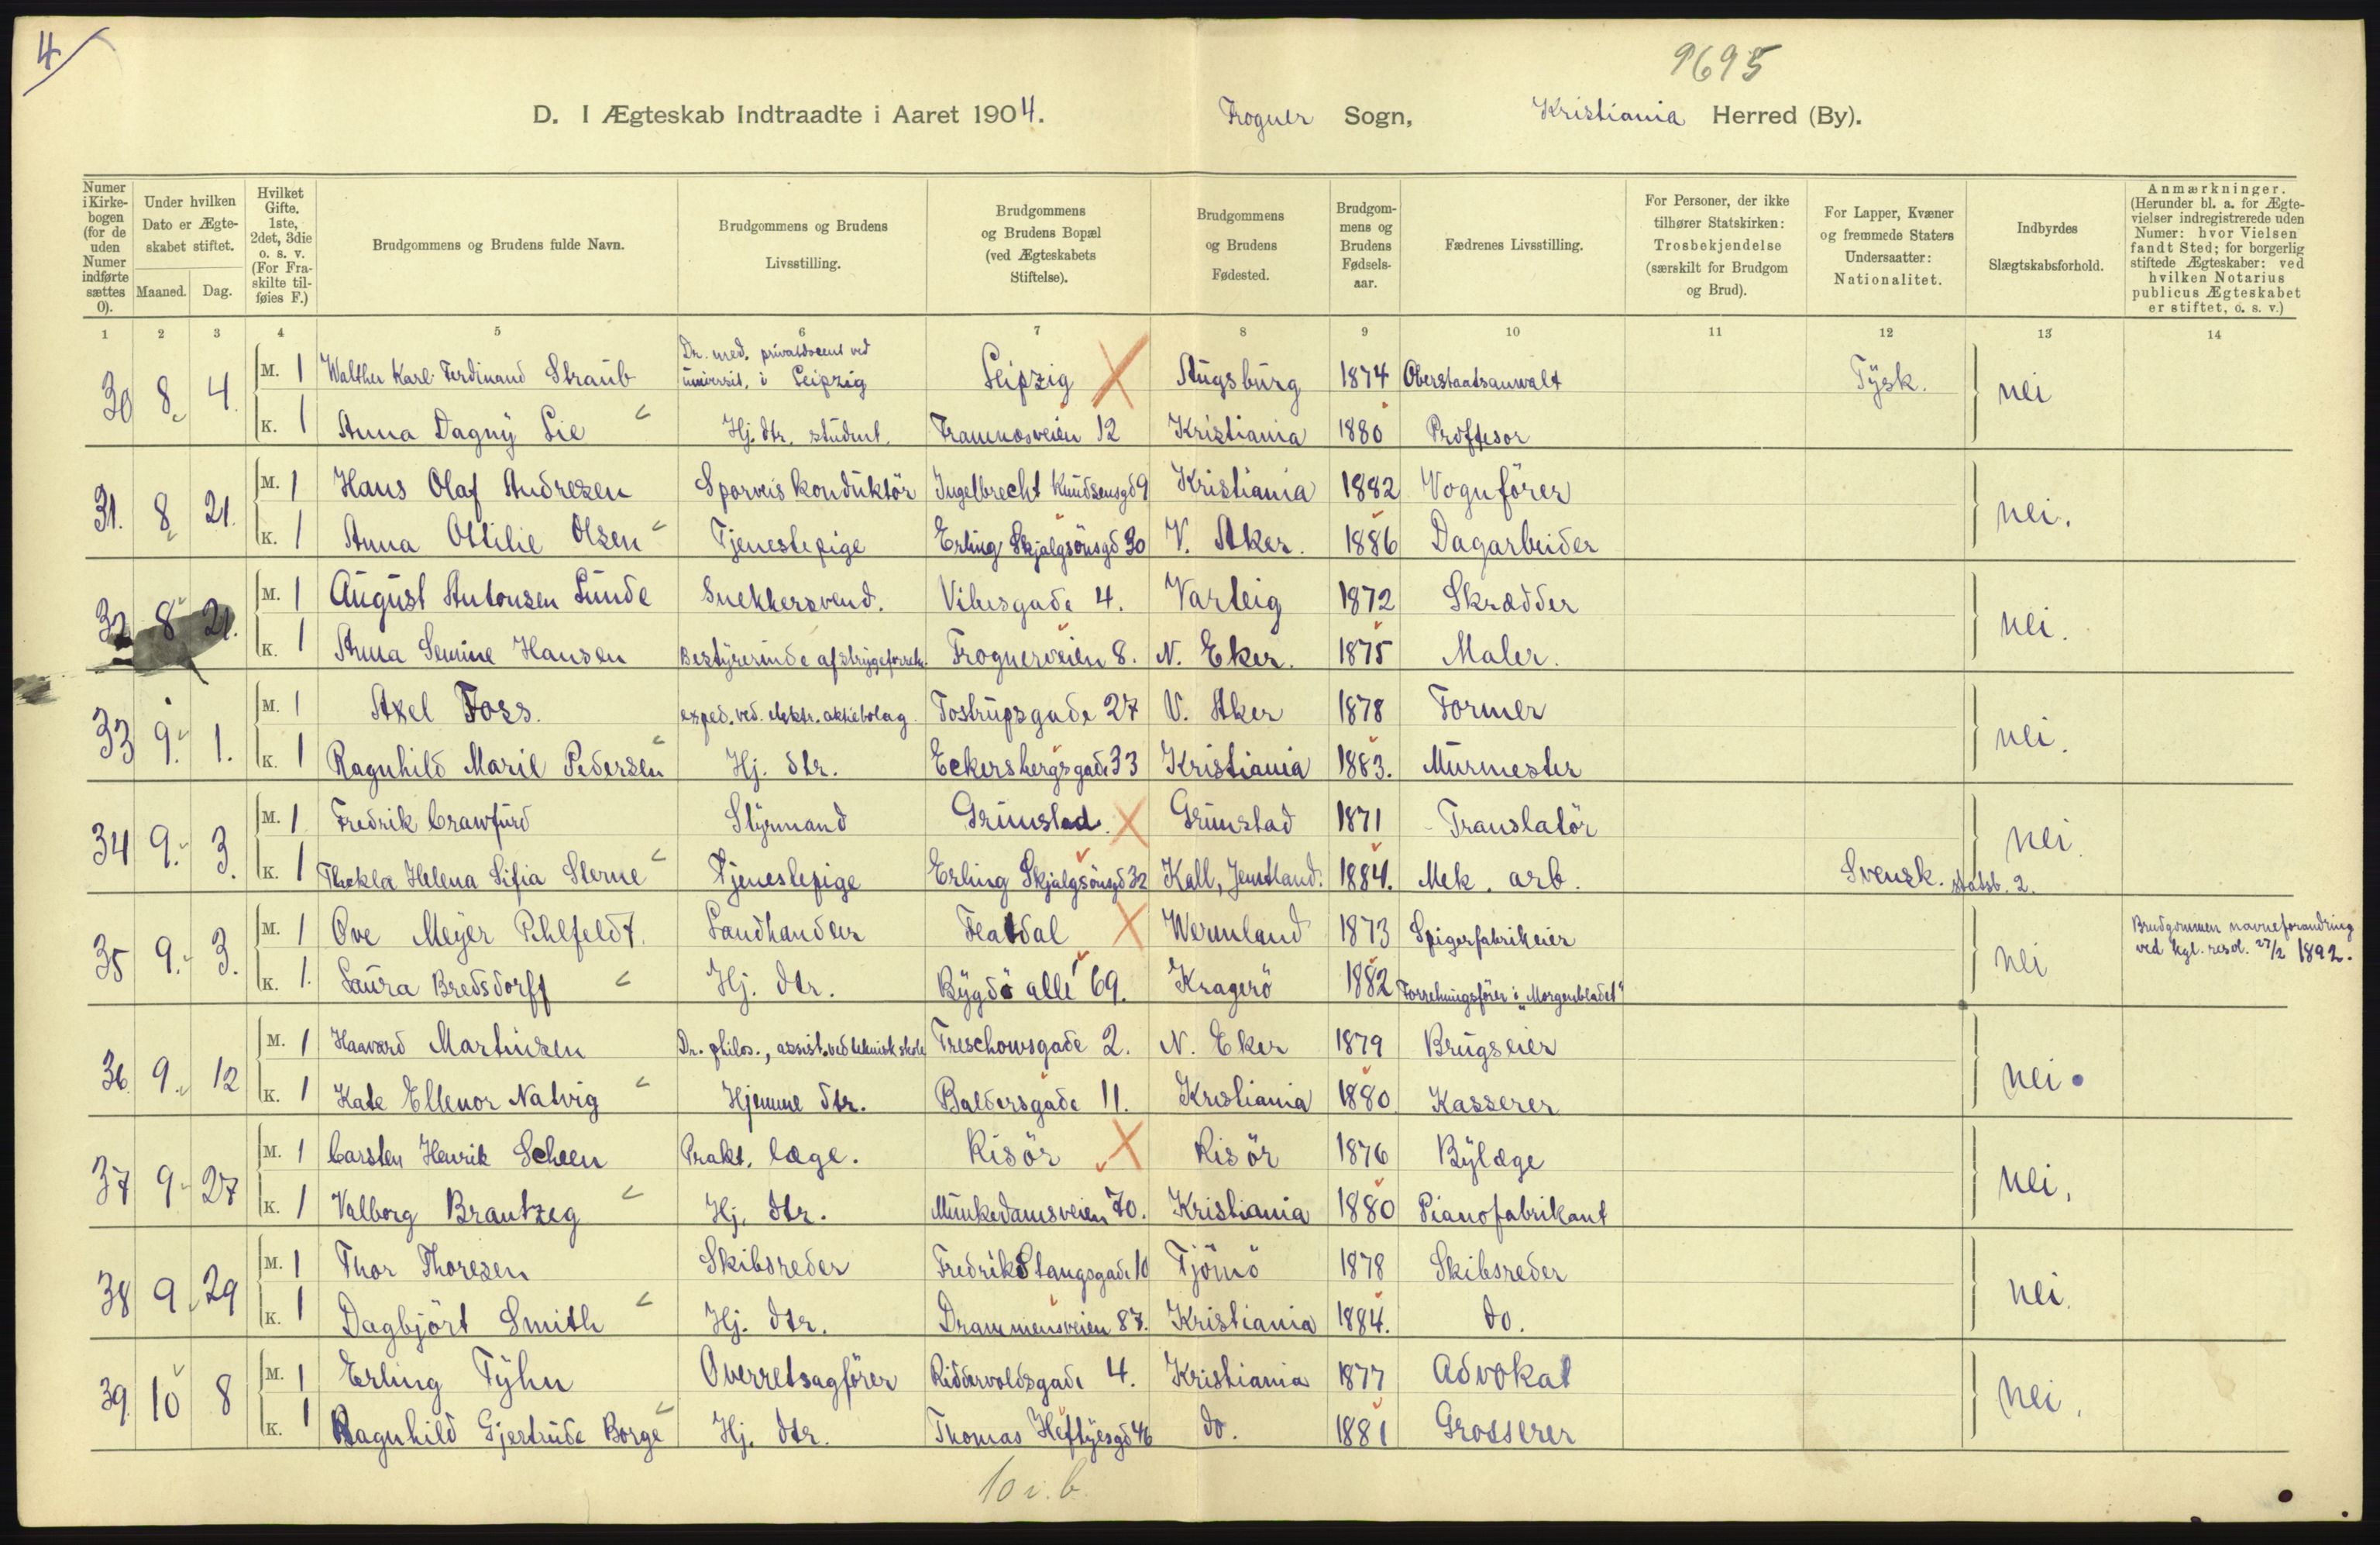 4
9695
D. I Ægteskab Indtraadte i Aaret 1904. Frogner Sogn, Kristiania Herred (By).
Numer i Kirkebogen (for de uden Numer indførte sættes 0).
Under hvilken Dato er Ægteskabet stiftet.
Maaned. Dag.
Hvilket Gifte. 1ste, 2det, 3die o. s. v. (For Fraskilte tilføies F.)
Brudgommens og Brudens fulde Navn.
Brudgommens og Brudens Livsstilling.
Brudgommens og Brudens Bopæl (ved Ægteskabets Stiftelse).
Brudgommens og Brudens Fødested.
Brudgommens og Brudens Fødselsaar.
Fædrenes Livsstilling.
For Personer, der ikke tilhører Statskirken: Trosbekjendelse (særskilt for Brudgom og Brud).
For Lapper, Kvæner og fremmede Staters Undersaatter: Nationalitet.
Indbyrdes Slægtskabsforhold.
Anmærkninger. (Herunder bl. a. for Ægtevielser indregistrerede uden Numer: hvor Vielsen fandt Sted; for borgerlig stiftede Ægteskaber: ved hvilken Notarius publicus Ægteskabet er stiftet, o. s. v.)
1 2 3 4 5 6 7 8 9 10 11 12 13 14
30 8 4. M. 1 Walther Karl Ferdinand Straub Dr. med. privatdocent ved universit. i Leipzig Leipzig Augsburg 1874 Oberstaatsanwalt Tysk. nei
K. 1 Anna Dagny Lie Hj. dtr. student. Framnæsveien 12 Kristiania 1880 Proffesor
31. 8 21. M. 1 Hans Olaf Andresen Sporveiskonduktör Ingelbrecht Knudsensgd 9 Kristiania 1882 Vognförer nei.
K. 1 Anna Ottilie Olsen Tjenestepige Erling Skjalgsönsgd 30 V. Aker. 1886 Dagarbeider
32 8 21. M. 1 August Antonsen Lunde Snekkersvend. Vibesgade 4. Varteig 1872 Skrædder nei.
K. 1 Anna Semine Hansen Bestyrerinde af strygeforretn. Frognerveien 8. N. Eker. 1875 Maler.
33 9. 1. M. 1 Axel Foss. exped. ved. elektr. aktiebolag. Tostrupsgade 27 V. Aker 1878 Former nei.
K. 1 Ragnhild Marie Pedersen Hj. dtr. Eckersbergsgade 33 Kristiania 1883. Murmester
34 9. 3. M. 1 Fredrik Crawfurd Styrmand Grimstad. Grimstad 1871 Translatör nei.
K. 1 Theckla Helena Sifia Sterne Tjenestepige Erling Skjalgsönsgd 32 Kall, Jemtland. 1884. Mek. arb. Svensk. statsb. 2.
35 9. 3. M. 1 Ove Meyer Pihlfeldt. Landhandler Featdal Wermland 1873 Spigerfabrikeier nei Brudgommen navneforandring ved kgl. resol. 27/2 1892.
K. 1. Laura Bredsdorff Hj. dtr. Bygdö allé 69. Kragerö 1882 Forretningsförer i "Morgenbladet"
36. 9. 12 M. 1 Haavard Martinsen Dr. philos., assist. ved teknisk skole Treschowsgade 2. N. Eker 1879 Brugseier nei.
K. 1 Kate Ellenor Natvig Hjemme dtr. Baldersgade 11. Kristiania 1880 Kasserer
37 9. 27 M. 1 Carsten Henrik Scheen Prakt. læge. Risör Risör 1876 Bylæge nei.
K. 1 Valborg Brantzeg Hj. dtr. Munkedamsveien 70. Kristiania 1880 Pianofabrikant
38 9 29 M. 1 Thor Thoresen Skibsreder Fredrik Stangsgade 10 Tjömö 1878 Skibsreder nei.
K. 1 Dagbjört Smith Hj. dtr. Drammensveien 87. Kristiania 1884. do.
39. 10 8 M. 1 Erling Tyhn Overretsagförer Riddervoldsgade 4. Kristiania 1877 Advokat nei.
K. 1 Ragnhild Gjertrude Borge Hj. dtr. Thomas Heftyesgd 46 do. 1881 Grosserer
10 i. b.